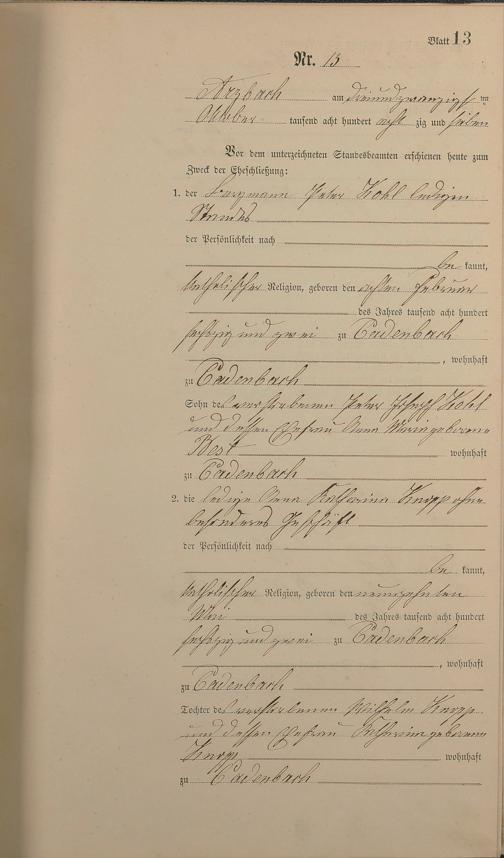 Blatt 13
Nr. 13
Arzbach am dreiundzwanzigsten
Oktober tausend acht hundert acht zig und sieben
Vor dem unterzeichneten Standesbeamten erschienen heute zum
Zweck der Eheschließung:
1. der Bergmann Peter Kohl ledigen
Standes
der Persönlichkeit nach
be kannt,
katholischer Religion, geboren den achten Februar
des Jahres tausend acht hundert
sechszig und zwei zu Cadenbach
, wohnhaft
zu Cadenbach
Sohn des verstorbenen Peter Joseph Kohl
und dessen Ehefrau Anna Maria geborene
Best wohnhaft
zu Cadenbach
2. die ledige Anna Katharina Knopp ohne
besonderes Geschäft
der Persönlichkeit nach
be kannt,
katholischer Religion, geboren den neunzehnten
Mai des Jahres tausend acht hundert
sechszig und zwei zu Cadenbach
, wohnhaft
zu Cadenbach
Tochter des verstorbenen Wilhelm Knopp
und dessen Ehefrau Katharina geborene
Knopp wohnhaft
zu Cadenbach